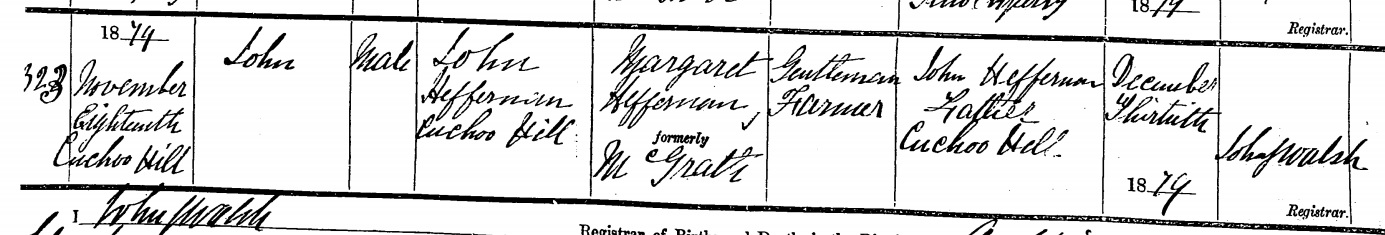 1879
Registrar.
1879
323
November
Eighteenth
Cuckoo Hill
John
Male
John
Heffernan
Cuckoo Hill
Margaret
Heffernan,
formerly
McGrath
Gentleman
Farmer
John Heffernan
Father
Cuckoo Hill.
December
Thirtieth
1879
John J Walsh
Registrar.
I John J Walsh
Registrar of Births and Deaths in the